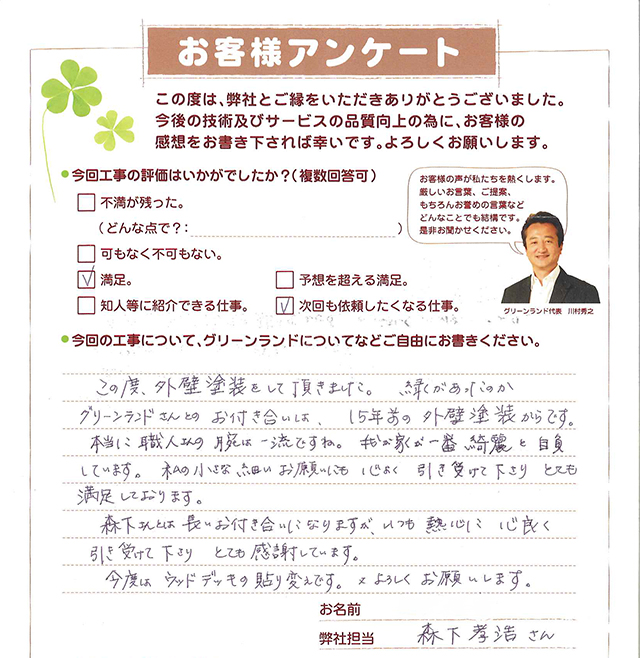 お客様アンケート
この度は、弊社とご縁をいただきありがとうございました。
今後の技術及びサービスの品質向上の為に、お客様の
感想をお書き下されば幸いです。よろしくお願いします。
●今回工事の評価はいかがでしたか？（複数回答可）
不満が残った。
（どんな点で？：　）
可もなく不可もない。
✓満足。
予想を超える満足。
知人等に紹介できる仕事。
✓次回も依頼したくなる仕事。
お客様の声が私たちを熱くします。
厳しいお言葉、ご提案、
もちろんお誉めの言葉など
どんなことでも結構です。
是非お聞かせください。
グリーンランド代表　川村秀之
●今回の工事について、グリーンランドについてなどご自由にお書きください。
この度、外壁塗装をして頂きました。縁があったのか
グリーンランドさんとの お付き合いは、15年前の外壁塗装からです。
本当に職人さんの腕は一流ですね。我が家が一番 綺麗と自負
しています。私の小さな細い お願いにも 心よく 引き受けて下さり とても
満足しております。
森下さんとは 長いお付き合いになりますが、いつも 熱心に 心良く
引き受けて下さり とても感謝しています。
今度は ウッドデッキの貼り変えです。 よろしく お願いします。
お名前
弊社担当　森下孝浩さん